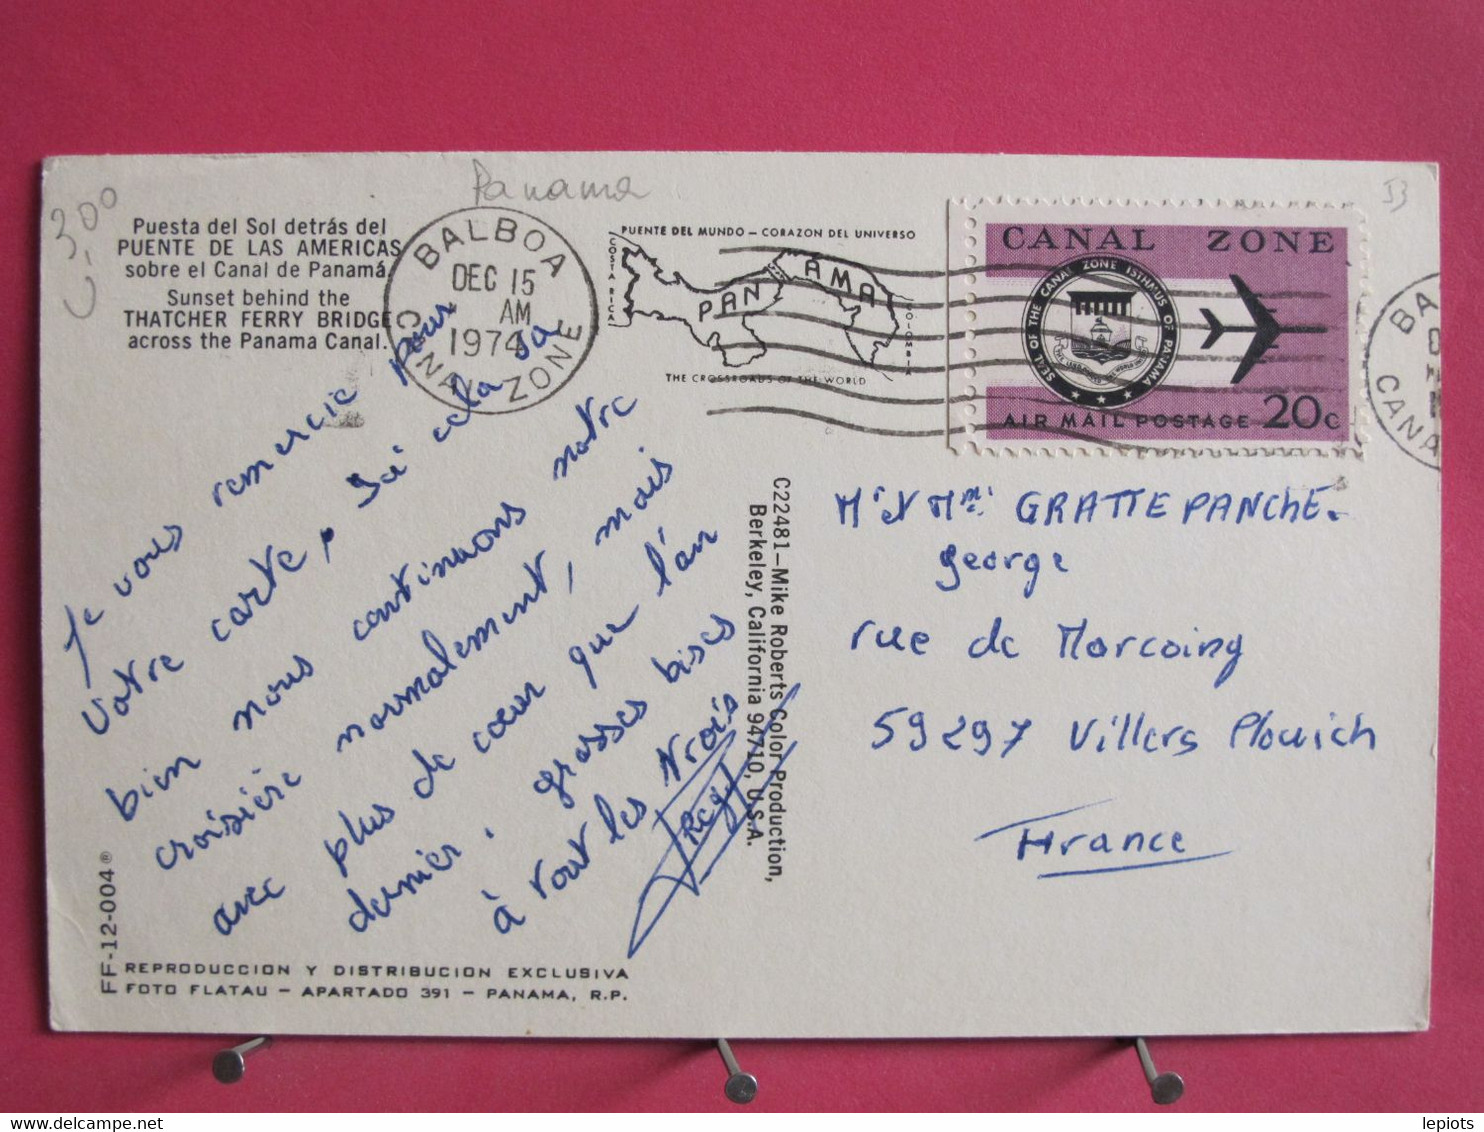 Panama
3,00
53
Puesta del Sol detrás del
PUENTE DE LAS AMERICAS
sobre el Canal de Panamá.
Sunset behind the
THATCHER FERRY BRIDGE
across the Panama Canal.
BALBOA
DEC 15
AM
1974
CANAL ZONE
PUENTE DEL MUNDO – CORAZON DEL UNIVERSO
COSTA RICA
PANAMA
COLOMBIA
THE CROSSROADS OF THE WORLD
CANAL ZONE
SEAL OF THE CANAL ZONE ISTHMUS OF PANAMA
AIR MAIL POSTAGE 20c
BA
CANA
Je vous remercie pour
votre carte, Ici cela va
bien nous continuons notre
croisière normalement, mais
avec plus de cœur que l'an
dernier. grosses bises
à tout les trois
C22481–Mike Roberts Color Production,
Berkeley, California 94710, U.S.A.
Mr et Mme GRATTEPANCHE.
george
rue de Marcoing
59297 Villers Plouich
France
FF-12-004®
REPRODUCCION Y DISTRIBUCION EXCLUSIVA
FOTO FLATAU – APARTADO 391 – PANAMA, R.P.
lepiots